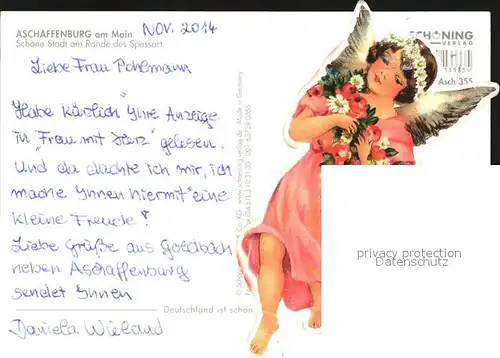 ASCHAFFENBURG am Main
Schöne Stadt am Rande des Spessart
Nov. 2014
SCHÖNING
VERLAG
Asch 355
Liebe Frau Pohlmann
Habe kürzlich Ihre Anzeige
in „Frau mit Herz" gelesen.
Und da dachte ich mir, ich
mache Ihnen hiermit eine
kleine Freude!
Liebe Grüße aus Goldbach
neben Aschaffenburg
sendet Ihnen
Daniela Wieland
Deutschland ist schön
privacy protection
Datenschutz